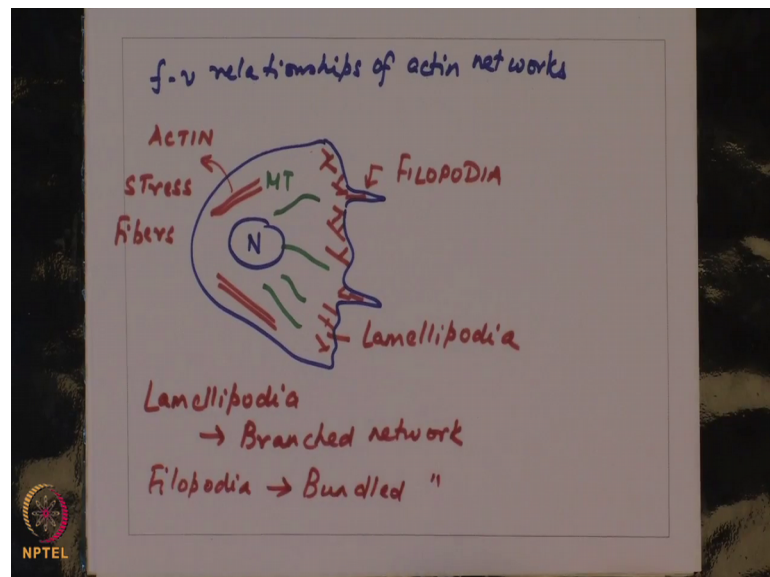 f-v relationships of actin networks
ACTIN
stress
Fibers
MT
FILOPODIA
N
Lamellipodia
Lamellipodia
→ Branched network
Filopodia → Bundled "
NPTEL